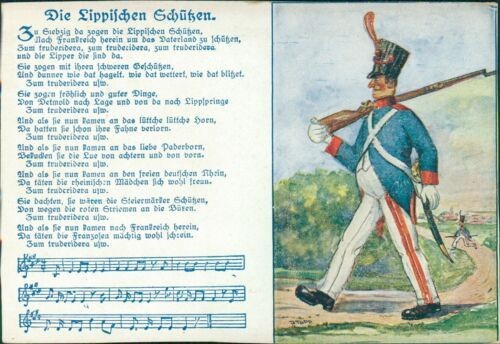 Die Lippischen Schützen.
Zu Siebzig da zogen die Lippischen Schützen,
Nach Frankreich herein um das Vaterland zu schützen,
Zum truderidera, zum truderidera, zum truderidera
und die Lipper die sind da.
Sie zogen mit ihren schweren Geschützen,
Und dunner wie dat hagelt, wie dat wettert, wie dat blitzet.
Zum truderidera usw.
Sie zogen fröhlich und guter Dinge,
Von Detmold nach Lage und von da nach Lippspringe
Zum truderidera usw.
Und als sie nun kamen an das lüttche lüttche Horn,
Da hatten se schon ihre Fahne verlorn.
Zum truderidera usw.
Und als sie nun kamen an das liebe Paderborn,
die Lue von achtern und von vorn.
Zum truderidera usw.
Und als sie nun kamen an den freien deutschen Rhein,
Da täten die rheinischen Mädchen sich wohl freun.
Zum truderidera usw.
Sie dachten, sie wären die Steiermärker Schützen,
Von wegen die roten Striemen an die Büxen.
Zum truderidera usw.
Und als sie nun kamen nach Frankreich herein,
Da täten die Franzosen mächtig wohl schrein.
Zum truderidera usw.